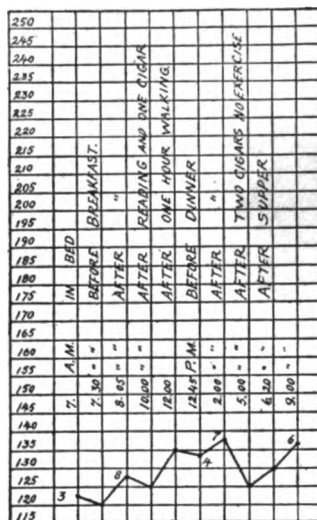 250
245
240
235
230
225
220
215
210
205
200
195
190
185
180
175
170
165
160
155
150
145
140
135
130
125
120
115
7. A.M. IN BED
7.30 " " BEFORE BREAKFAST.
8.05 " " AFTER "
10.00 " " AFTER READING AND ONE CIGAR
12.00 AFTER ONE HOUR WALKING
12.45 P.M. BEFORE DINNER
2.00 " " AFTER "
5.00 " " AFTER TWO CIGARS NO EXERCISE
6.20 " " AFTER SUPPER
9.00 " "
3
8
4
6